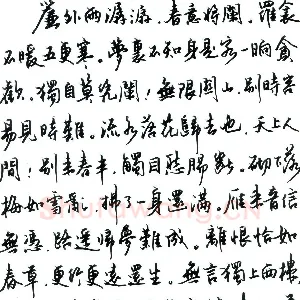 簾外雨潺潺，春意將闌。羅衾
不暖五更寒。夢裏不知身是客一晌貪
歡。獨自莫憑闌！無限關山，別時容
易見時難。流水落花歸去也，天上人
間！別來春半，觸目愁腸斷。砌下落
梅如雪亂，拂了一身還滿。雁來音信
無憑，路遙歸夢難成。離恨恰如
春草，更行更遠還生。無言獨上西樓